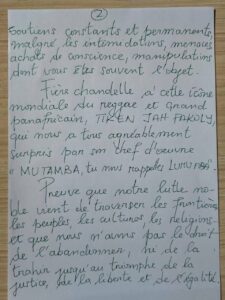 ②
Soutiens constants et permanents,
malgré les intimidations, menaces,
achats de conscience, manipulations
dont vous êtes souvent l'objet.
Fière chandelle à cette icône
mondiale du reggae et grand
panafricain, TIKEN JAH FAKOLY,
qui nous a tous agréablement
surpris par son chef d'oeuvre
" MUTAMBA, tu nous rappelles LUMUMBA".
Preuve que notre lutte no-
ble vient de traverser les frontières
les peuples, les cultures, les religions
et que nous n'avons pas le droit
de l'abandonner, ni de la
trahir jusqu'au triomphe de la
justice, de la liberté et de l'égalité.